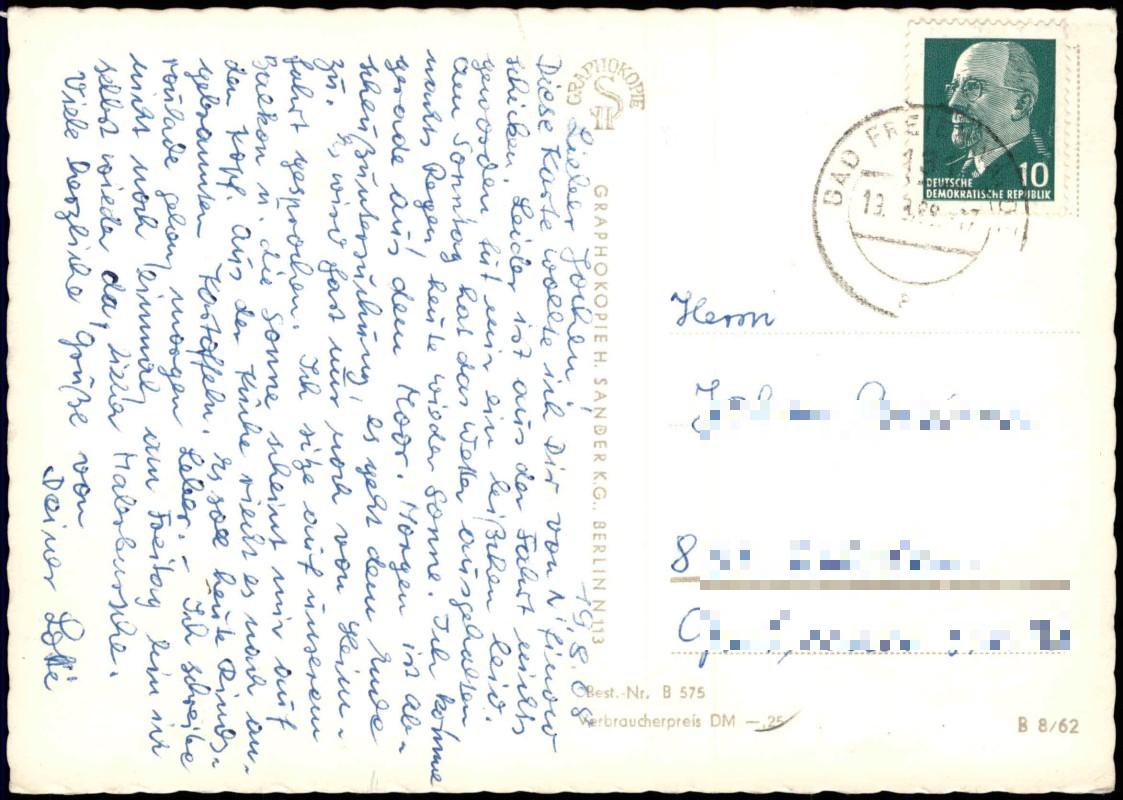 19.8.68.
Lieber Jochen!
Diese Karte wollte ich Dir von
schicken. Leider ist aus der Fahrt nichts
geworden, tut mir ein bißchen leid.
Am Sonntag hat das Wetter ausgehalten
nachts Regen, heute wieder Sonne. Ich komme
gerade aus dem Moor. Morgen ist Ab-
schlußuntersuchung, es geht dem Ende
zu. Es wird fast nur noch von Heim-
fahrt gesprochen. Ich sitze auf unserem
Balkon u. die Sonne scheint mir auf
den Kopf. Aus der Küche riecht es nach an-
gebrannten Kartoffeln. Es soll heute Rinds-
roulade geben, morgen Leber. - Ich schreibe
nicht noch einmal, am Freitag bin ich
selbst wieder da, lieber Malerbursche.
Viele herzliche Grüße von
Deiner Lotti
GRAPHOKOPIE
H
S
GRAPHOKOPIE H. SANDER K.G., BERLIN N 113
DEUTSCHE
DEMOKRATISCHE REPUBLIK
10
BAD
19.
Herrn
8
Best.-Nr. B 575
Verbraucherpreis DM —,25
B 8/62